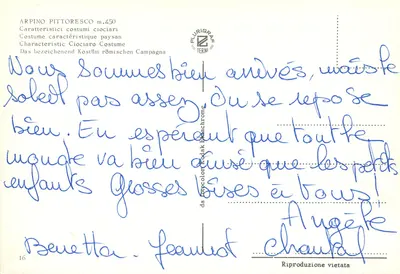 ARPINO PITTORESCO m. 450
Caratteristici costumi ciociari
Costume caractéristique paysan
Characteristic Ciociaro Costume
Das bezeichenend Kostüm römischen Campagna
PLURIGRAF
TERNI
Nous sommes bien arrivés, mais le
soleil pas assez, On se repose
bien. En espérant que tout le
monde va bien ainsi que les petits
enfants Grosses bises à tous!
Angèle
Benetta - Jeannot Chantal
da ektacolor Kodak Panchrome
16
Riproduzione vietata